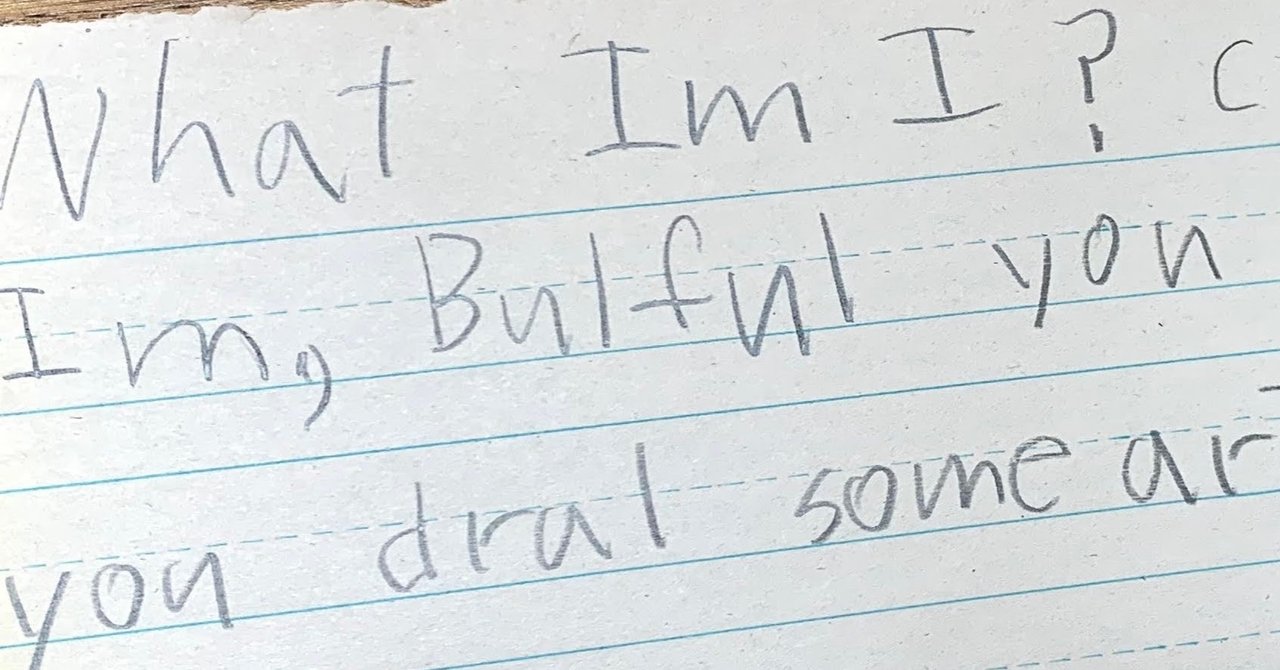 What Im I? c
Im, Bulful you
you dral some ar